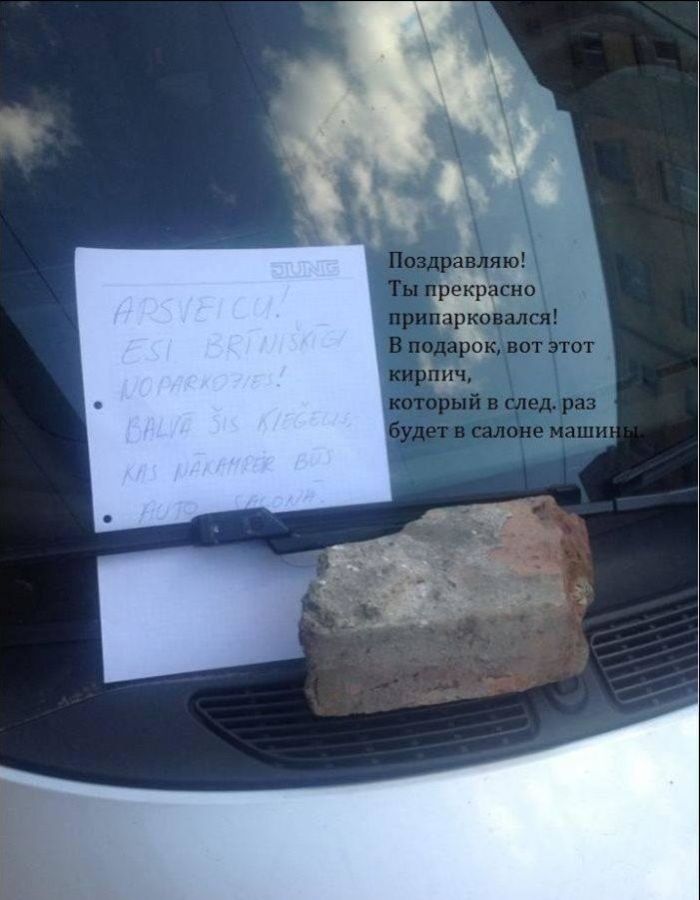 JUNG
APSVEICU!
ESI BRĪNIŠĶĪGI
NOPARKOJIES!
BALVĀ ŠIS ĶIEĢELIS,
KAS NĀKAMREIZ BŪS
AUTO SALONĀ.
Поздравляю!
Ты прекрасно
припарковался!
В подарок, вот этот
кирпич,
который в след. раз
будет в салоне машины.